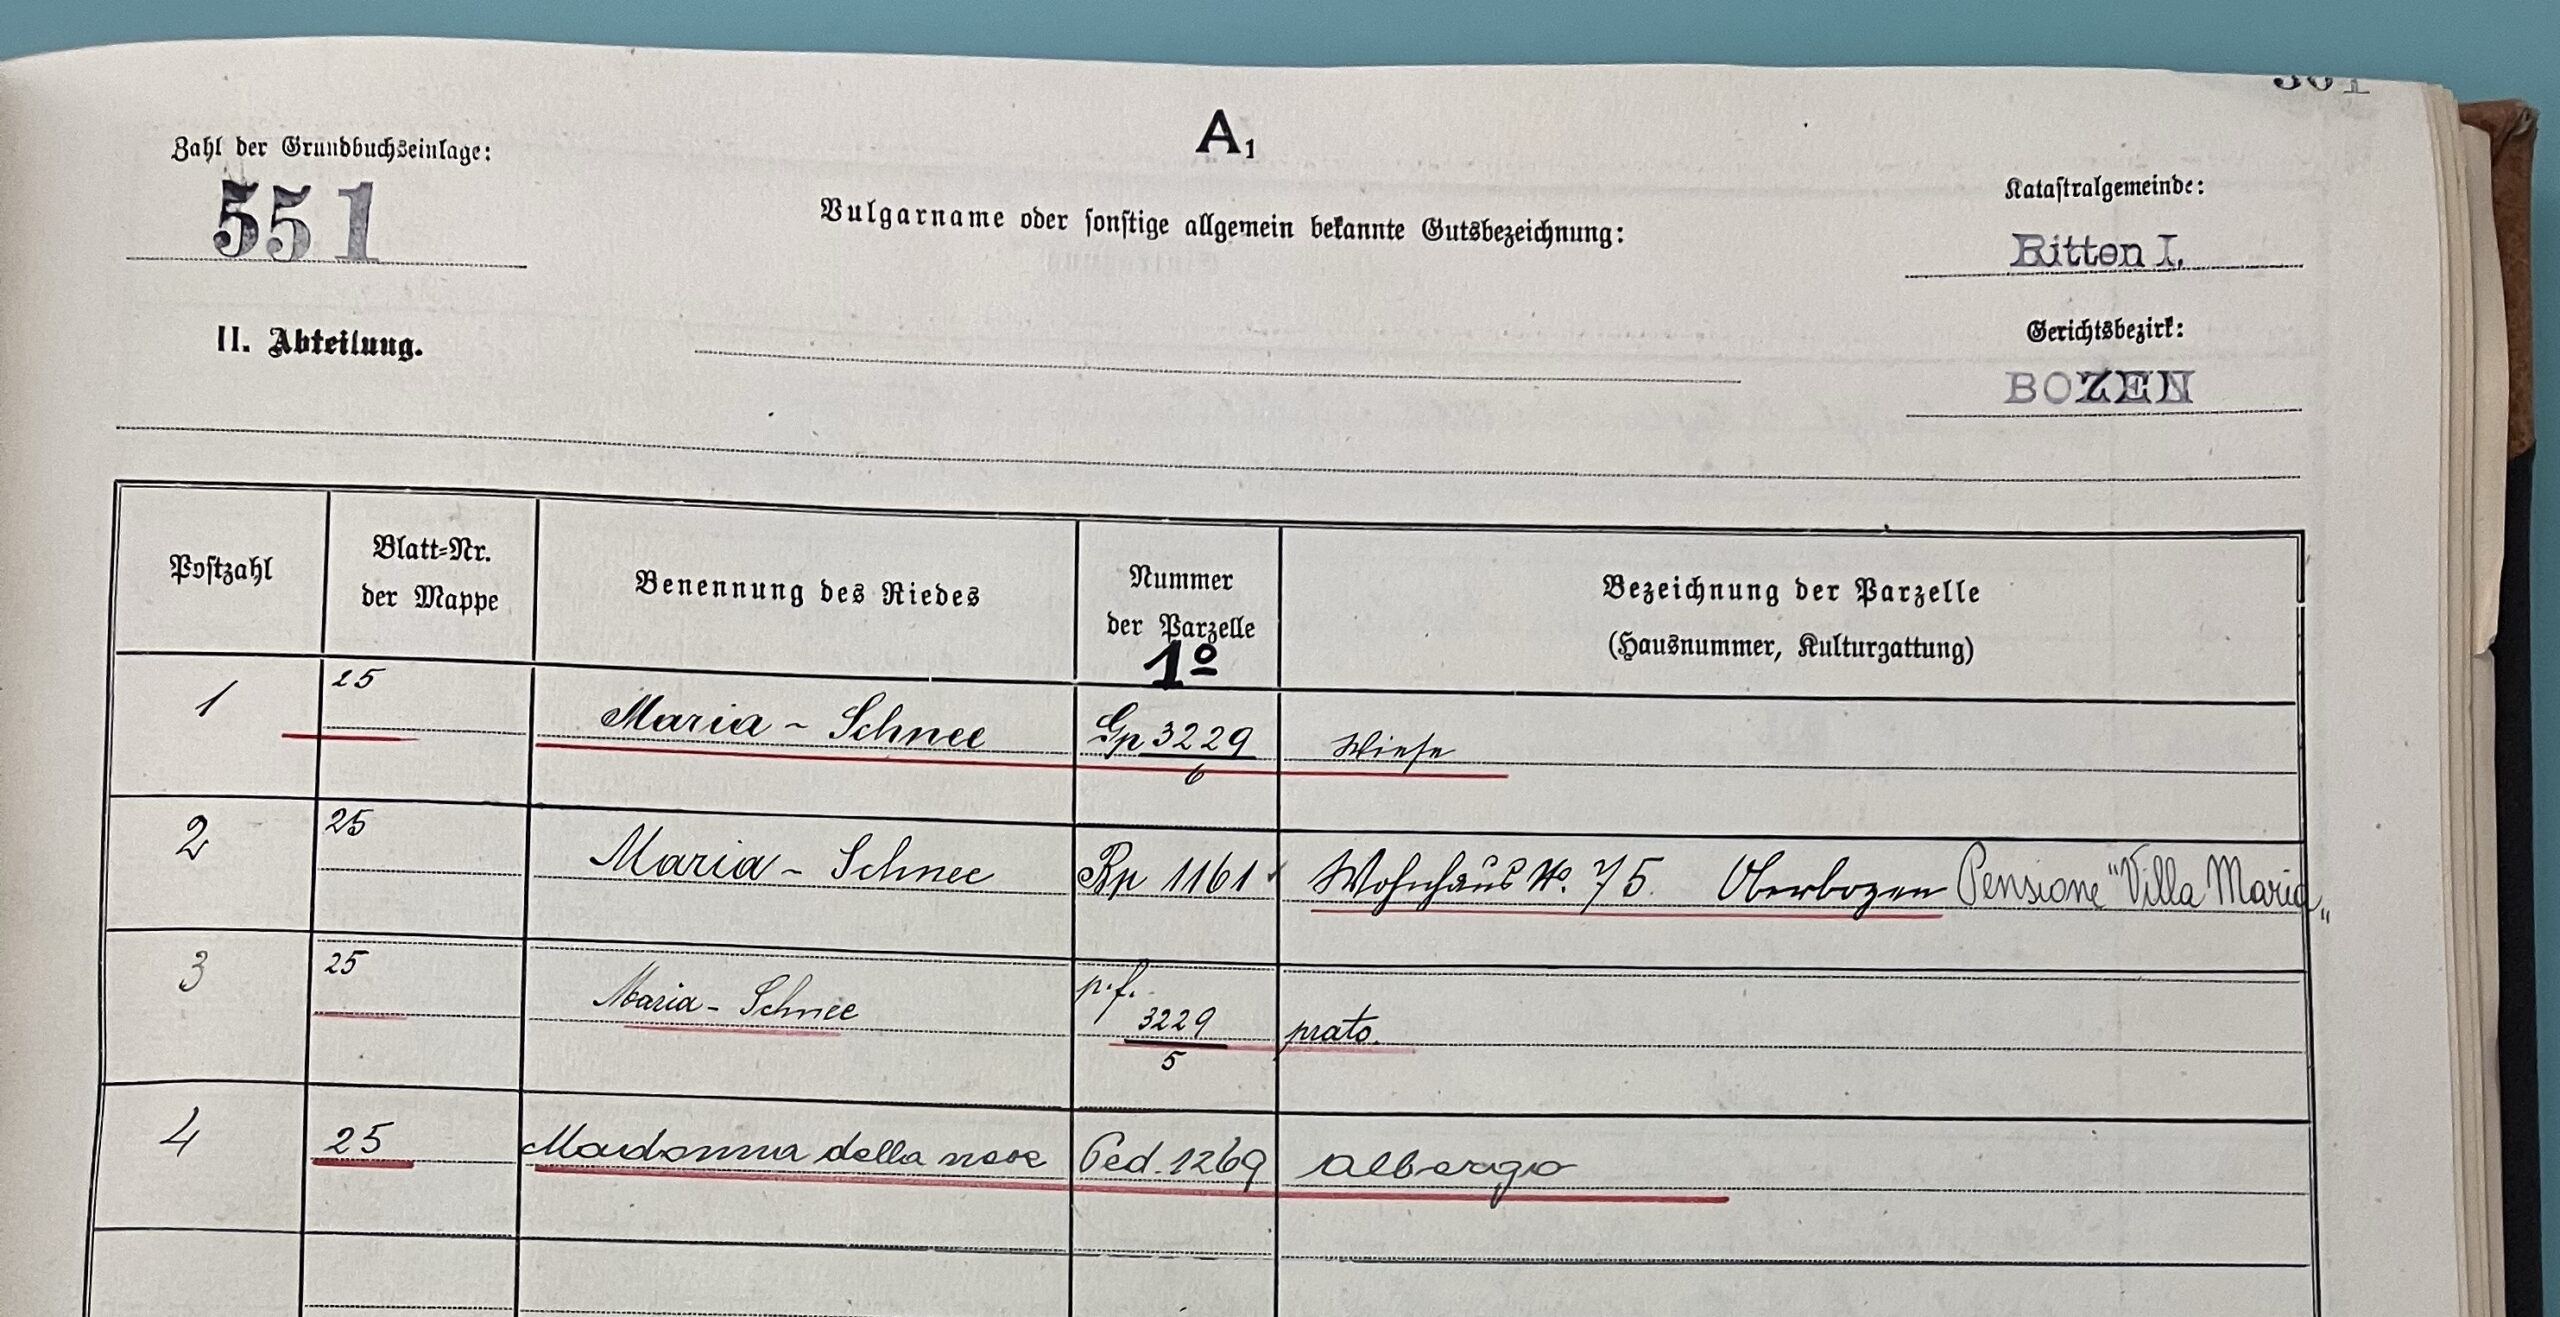 A₁
Zahl der Grundbuchseinlage:
551
Vulgarname oder sonstige allgemein bekannte Gutsbezeichnung:
Katastralgemeinde:
Ritten I.
II. Abteilung.
Gerichtsbezirk:
BOZEN
Postzahl
Blatt-Nr.
der Mappe
Benennung des Riedes
Nummer
der Parzelle
Bezeichnung der Parzelle
(Hausnummer, Kulturgattung)
1º
1 25 Maria - Schnee Gp 3229/6 Wiese
2 25 Maria - Schnee Bp 1161 Wohnhaus No. 75. Oberbozen Pensione "Villa Maria„
3 25 Maria - Schnee p.f. 3229/5 prato.
4 25 Madonna della neve P.ed. 1269 albergo